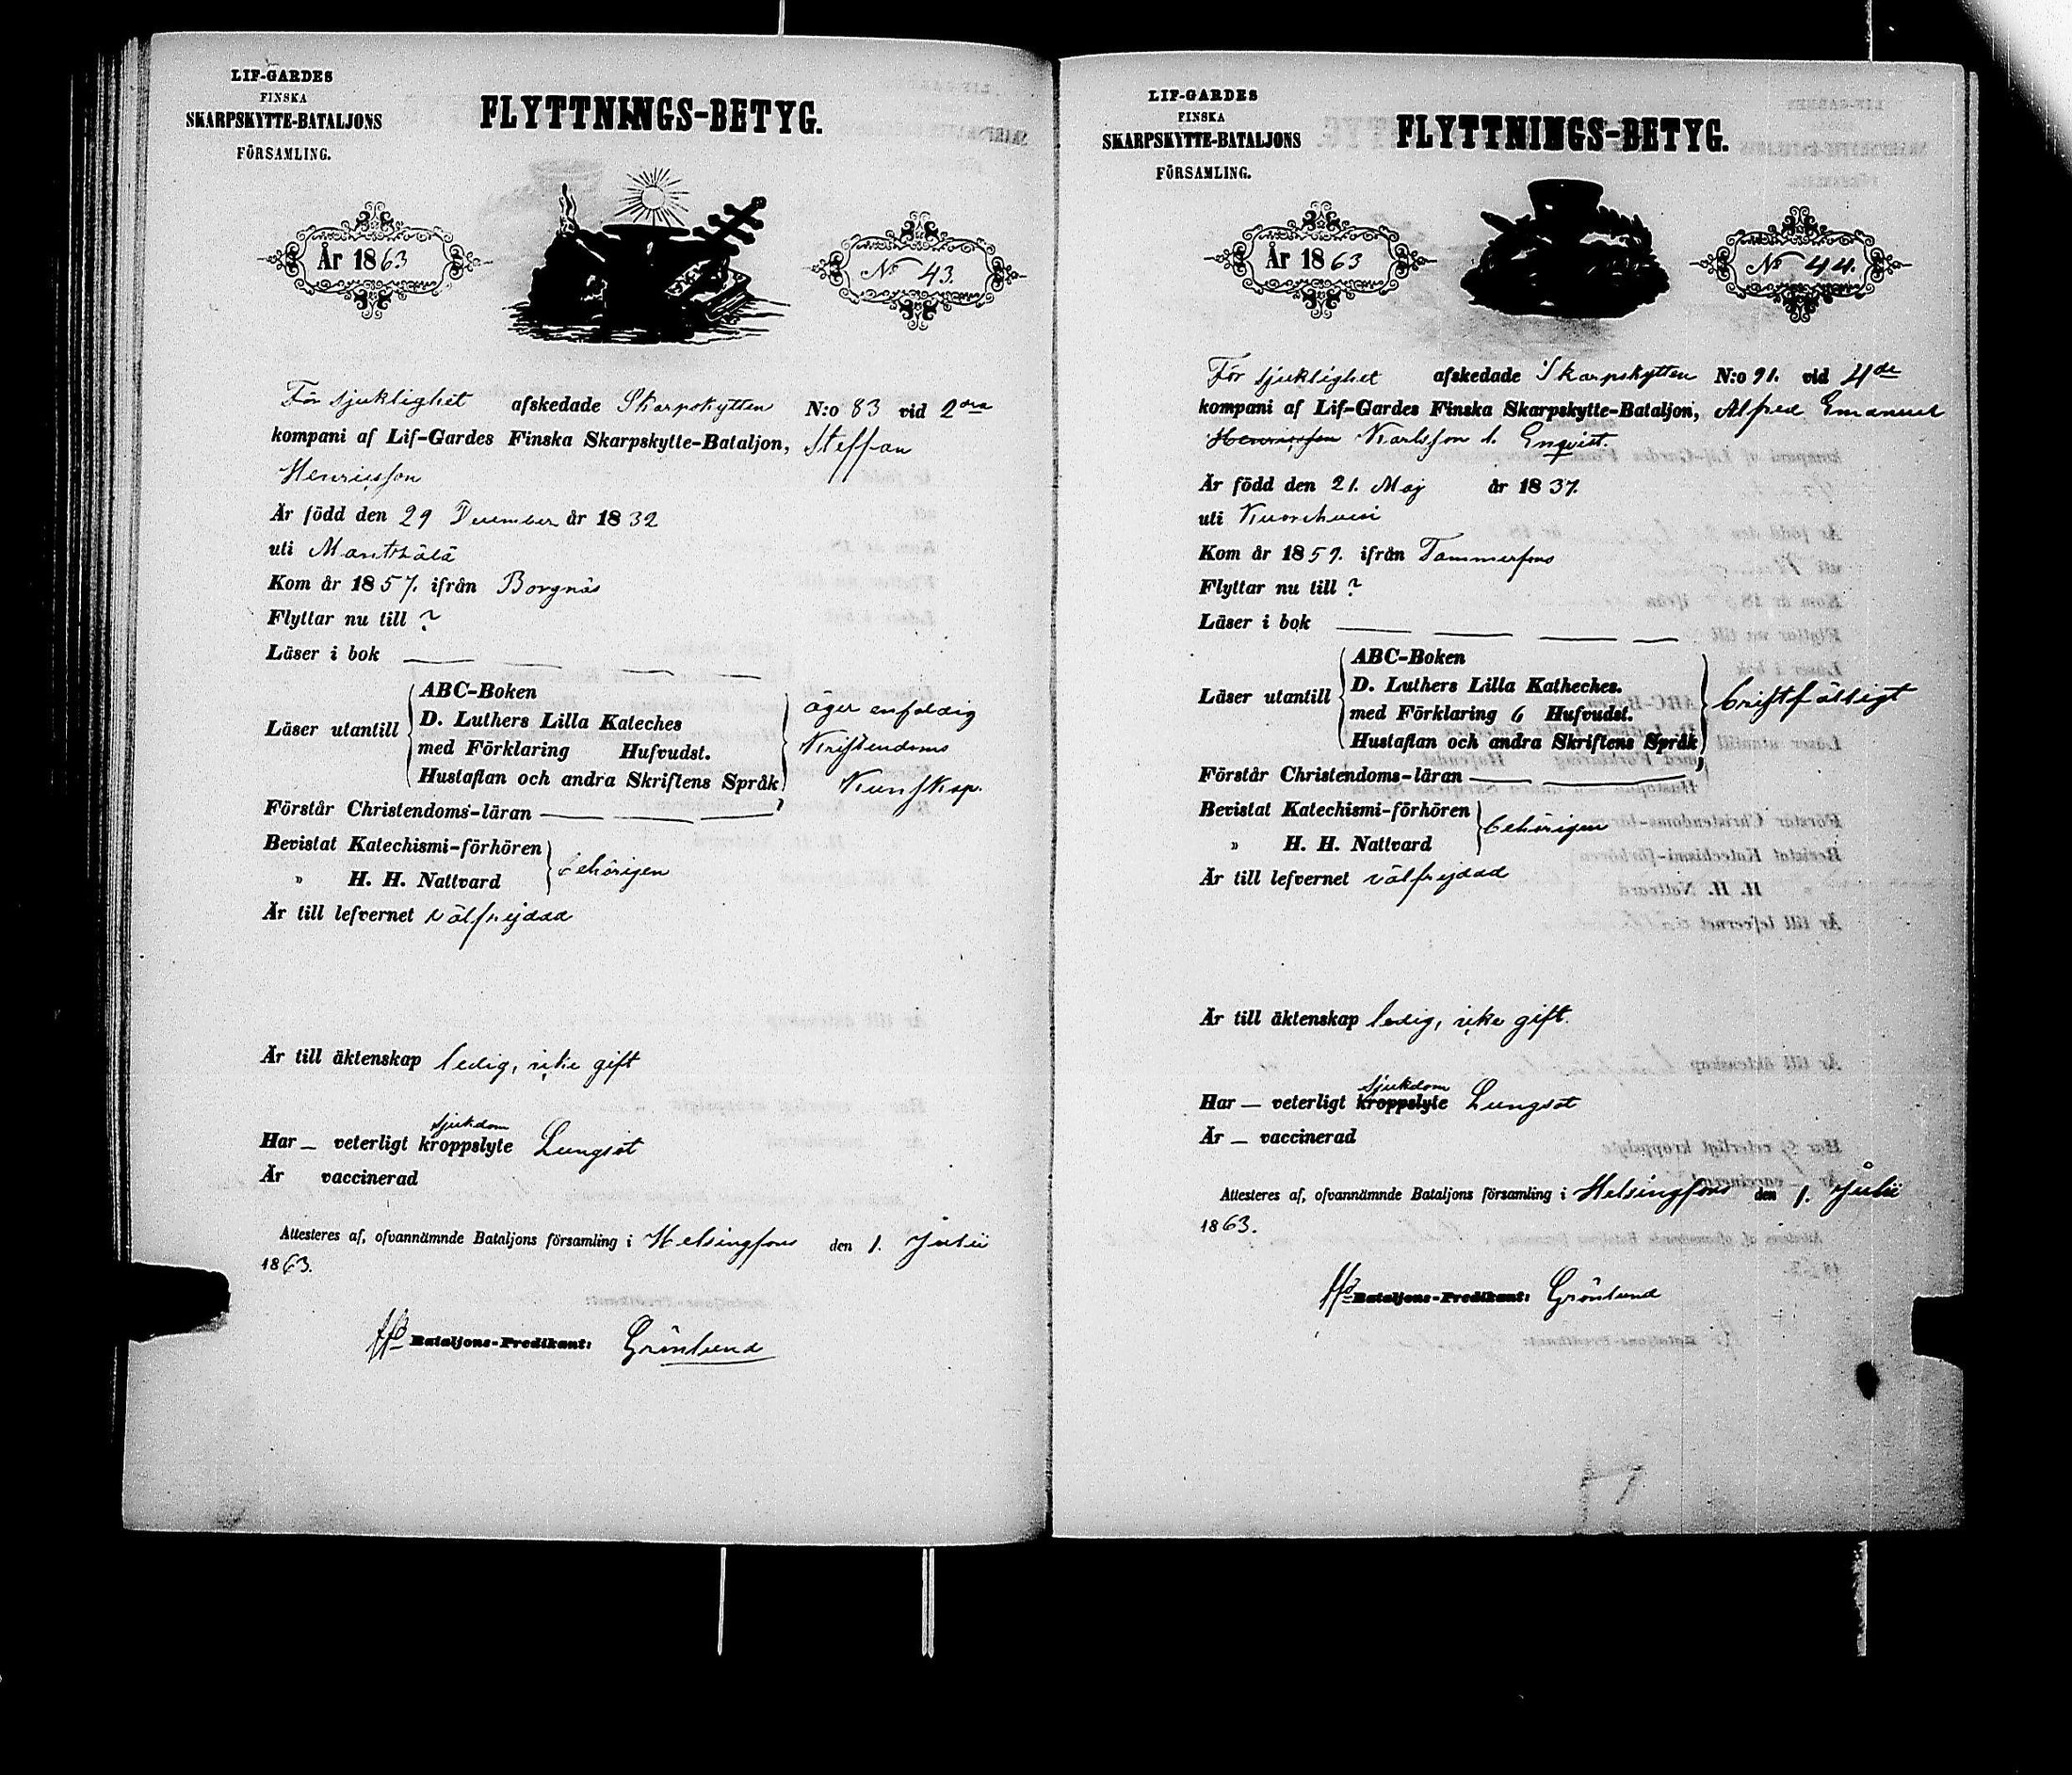 LIF-GARDES
FINSKA
SKARPSKYTTE-BATALJONS
FÖRSAMLING.
FLYTTNINGS-BETYG.
År 1863
No 43.
För sjuklighet afskedade Skarpskytten N:o 83 vid 2dra
kompani af Lif-Gardes Finska Skarpskytte-Bataljon, Steffan
Henriksson
Är född den 29 December år 1832
uti Mäntsälä
Kom år 1857. ifrån Borgnäs
Flyttar nu till ?
Läser i bok
Läser utantill
ABC-Boken
D. Luthers Lilla Kateches
med Förklaring Hufvudst.
Hustaflan och andra Skriftens Språk
äger enfaldig
Kristendoms
Kunskap.
Förstår Christendoms-läran
Bevistat Katechismi-förhören
" H. H. Nattvard
behörigen
Är till lefvernet välfrejdad
Är till äktenskap ledig, icke gift
sjukdom
Har — veterligt kroppslyte Lungsot
Är vaccinerad
Attesteres af, ofvannämnde Bataljons församling i Helsingfors den 1. Julii
1863.
Bataljons-Predikant: Grönlund
LIF-GARDES
FINSKA
SKARPSKYTTE-BATALJONS
FÖRSAMLING.
FLYTTNINGS-BETYG.
År 1863
No 44.
För sjuklighet afskedade Skarpskytten N:o 91. vid 4de
kompani af Lif-Gardes Finska Skarpskytte-Bataljon, Alfred Emanuel
Henriksson Karlsson l. Enqvist.
Är född den 21. Maj år 1837.
uti Kuorehvesi
Kom år 1857. ifrån Tammerfors
Flyttar nu till ?
Läser i bok
Läser utantill
ABC-Boken
D. Luthers Lilla Katheches.
med Förklaring 6 Hufvudst.
Hustaflan och andra Skriftens Språk
bristfälligt
Förstår Christendoms-läran
Bevistat Katechismi-förhören
" H. H. Nattvard
behörigen
Är till lefvernet välfrejdad
Är till äktenskap ledig, icke gift.
sjukdom
Har — veterligt kroppslyte Lungsot
Är — vaccinerad
Attesteres af, ofvannämnde Bataljons församling i Helsingfors den 1. Julii
1863.
Bataljons-Predikant: Grönlund